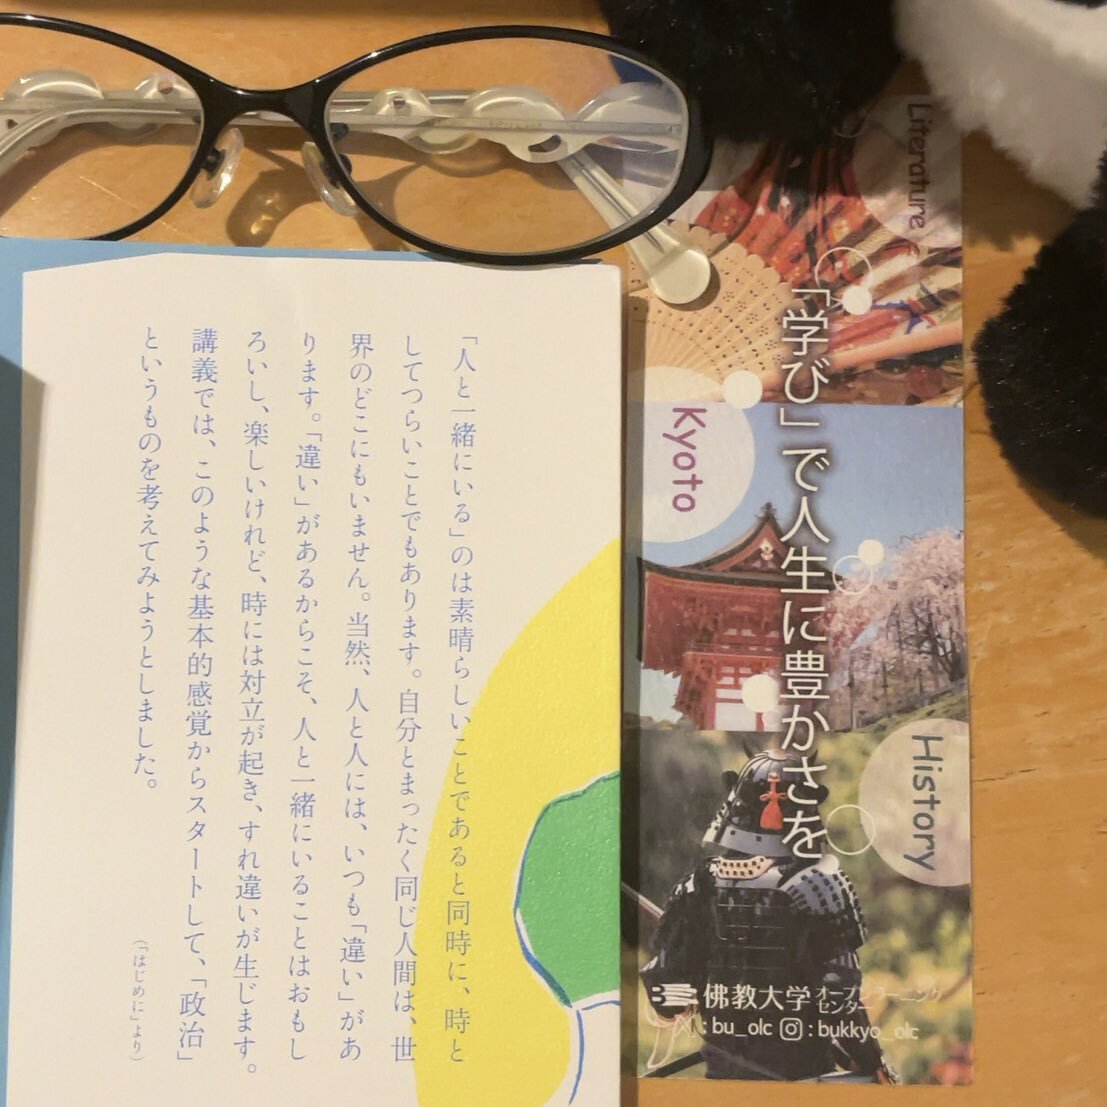 「人と一緒にいる」のは素晴らしいことであると同時に、時と
してつらいことでもあります。自分とまったく同じ人間は、世
界のどこにもいません。当然、人と人には、いつも「違い」があ
ります。「違い」があるからこそ、人と一緒にいることはおもし
ろいし、楽しいけれど、時には対立が起き、すれ違いが生じます。
講義では、このような基本的感覚からスタートして、「政治」
というものを考えてみようとしました。
（「はじめに」より）
Literature
「学び」で人生に豊かさを
Kyoto
History
佛教大学 オープンラーニング
センター
X : bu_olc : bukkyo_olc